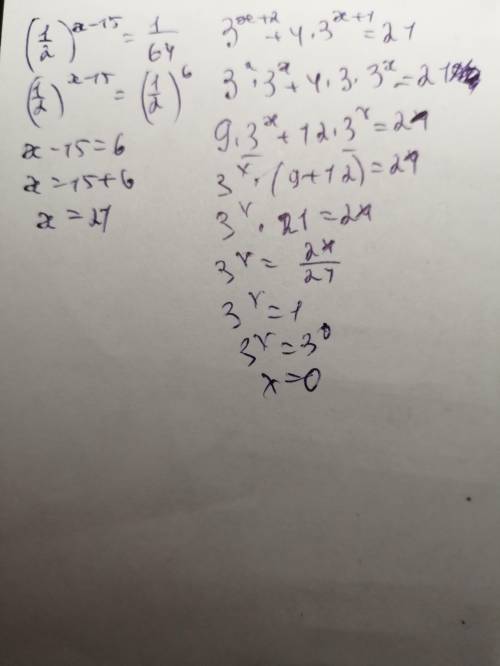 (1/2)^(x-15) = 1/64
(1/2)^(x-15) = (1/2)^6
x-15=6
x=15+6
x=21
3^(x+2) + 4·3^(x+1) = 21
3^2·3^x + 4·3·3^x = 21
9·3^x + 12·3^x = 21
3^x·(9+12) = 21
3^x·21 = 21
3^x = 21/21
3^x = 1
3^x = 3^0
x=0